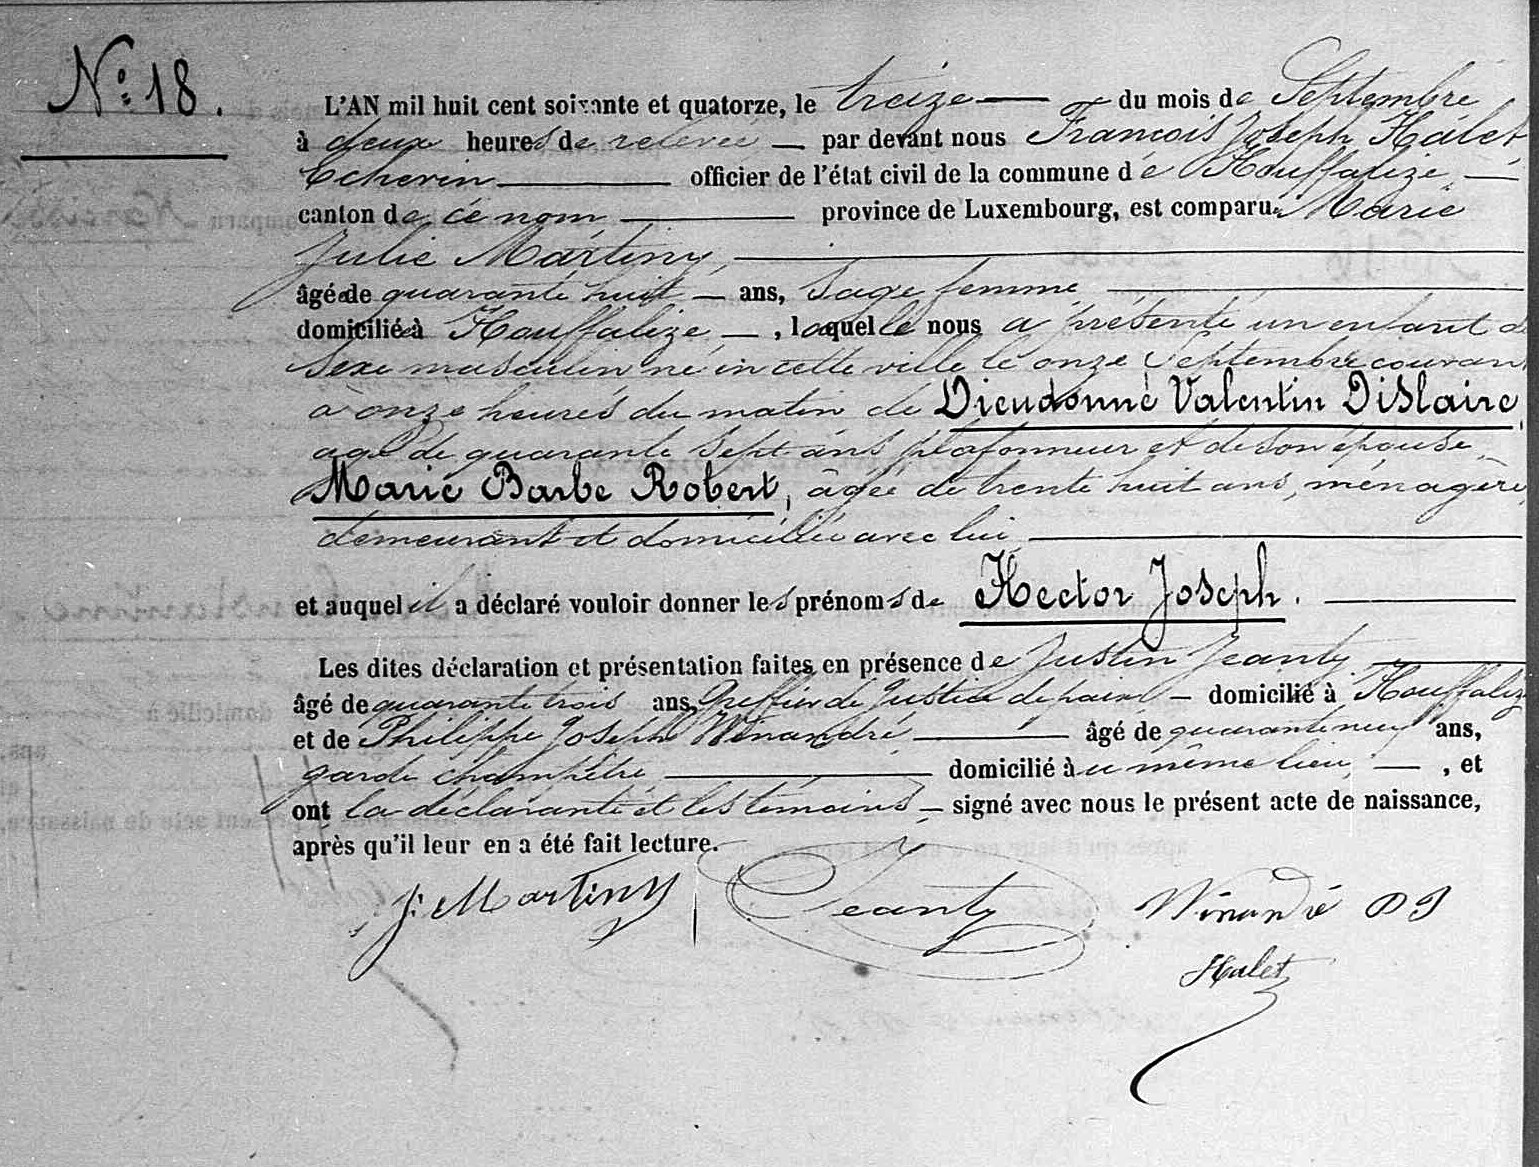 N.° 18.
L'AN mil huit cent soixante et quatorze, le treize — du mois de Septembre
à deux heures de relevée — par devant nous François Joseph Halet,
Echevin — officier de l'état civil de la commune de Houffalize, —
canton de ce nom — province de Luxembourg, est comparue Marie
Julie Martiny, —
âgée de quarante huit — ans, sage femme —
domiciliée à Houffalize, — , laquelle nous a présenté un enfant de
sexe masculin né en cette ville le onze Septembre courant
à onze heures du matin de Dieudonné Valentin Dislaire,
agé de quarante sept ans plafonneur et de son épouse
Marie Barbe Robert, âgée de trente huit ans, ménagère
demeurant et domiciliée avec lui —
et auquel il a déclaré vouloir donner les prénoms de Hector Joseph. —
Les dites déclaration et présentation faites en présence de Justin Jeanty —
âgé de quarante trois ans, Greffier de Justice de paix — domicilié à Houffalize
et de Philippe Joseph Winandré — âgé de quarante neuf ans,
garde champêtre — domicilié au même lieu, — , et
ont la déclarante et les témoins — signé avec nous le présent acte de naissance,
après qu'il leur en a été fait lecture.
J. Martiny Jeanty Winandré P J
Halet